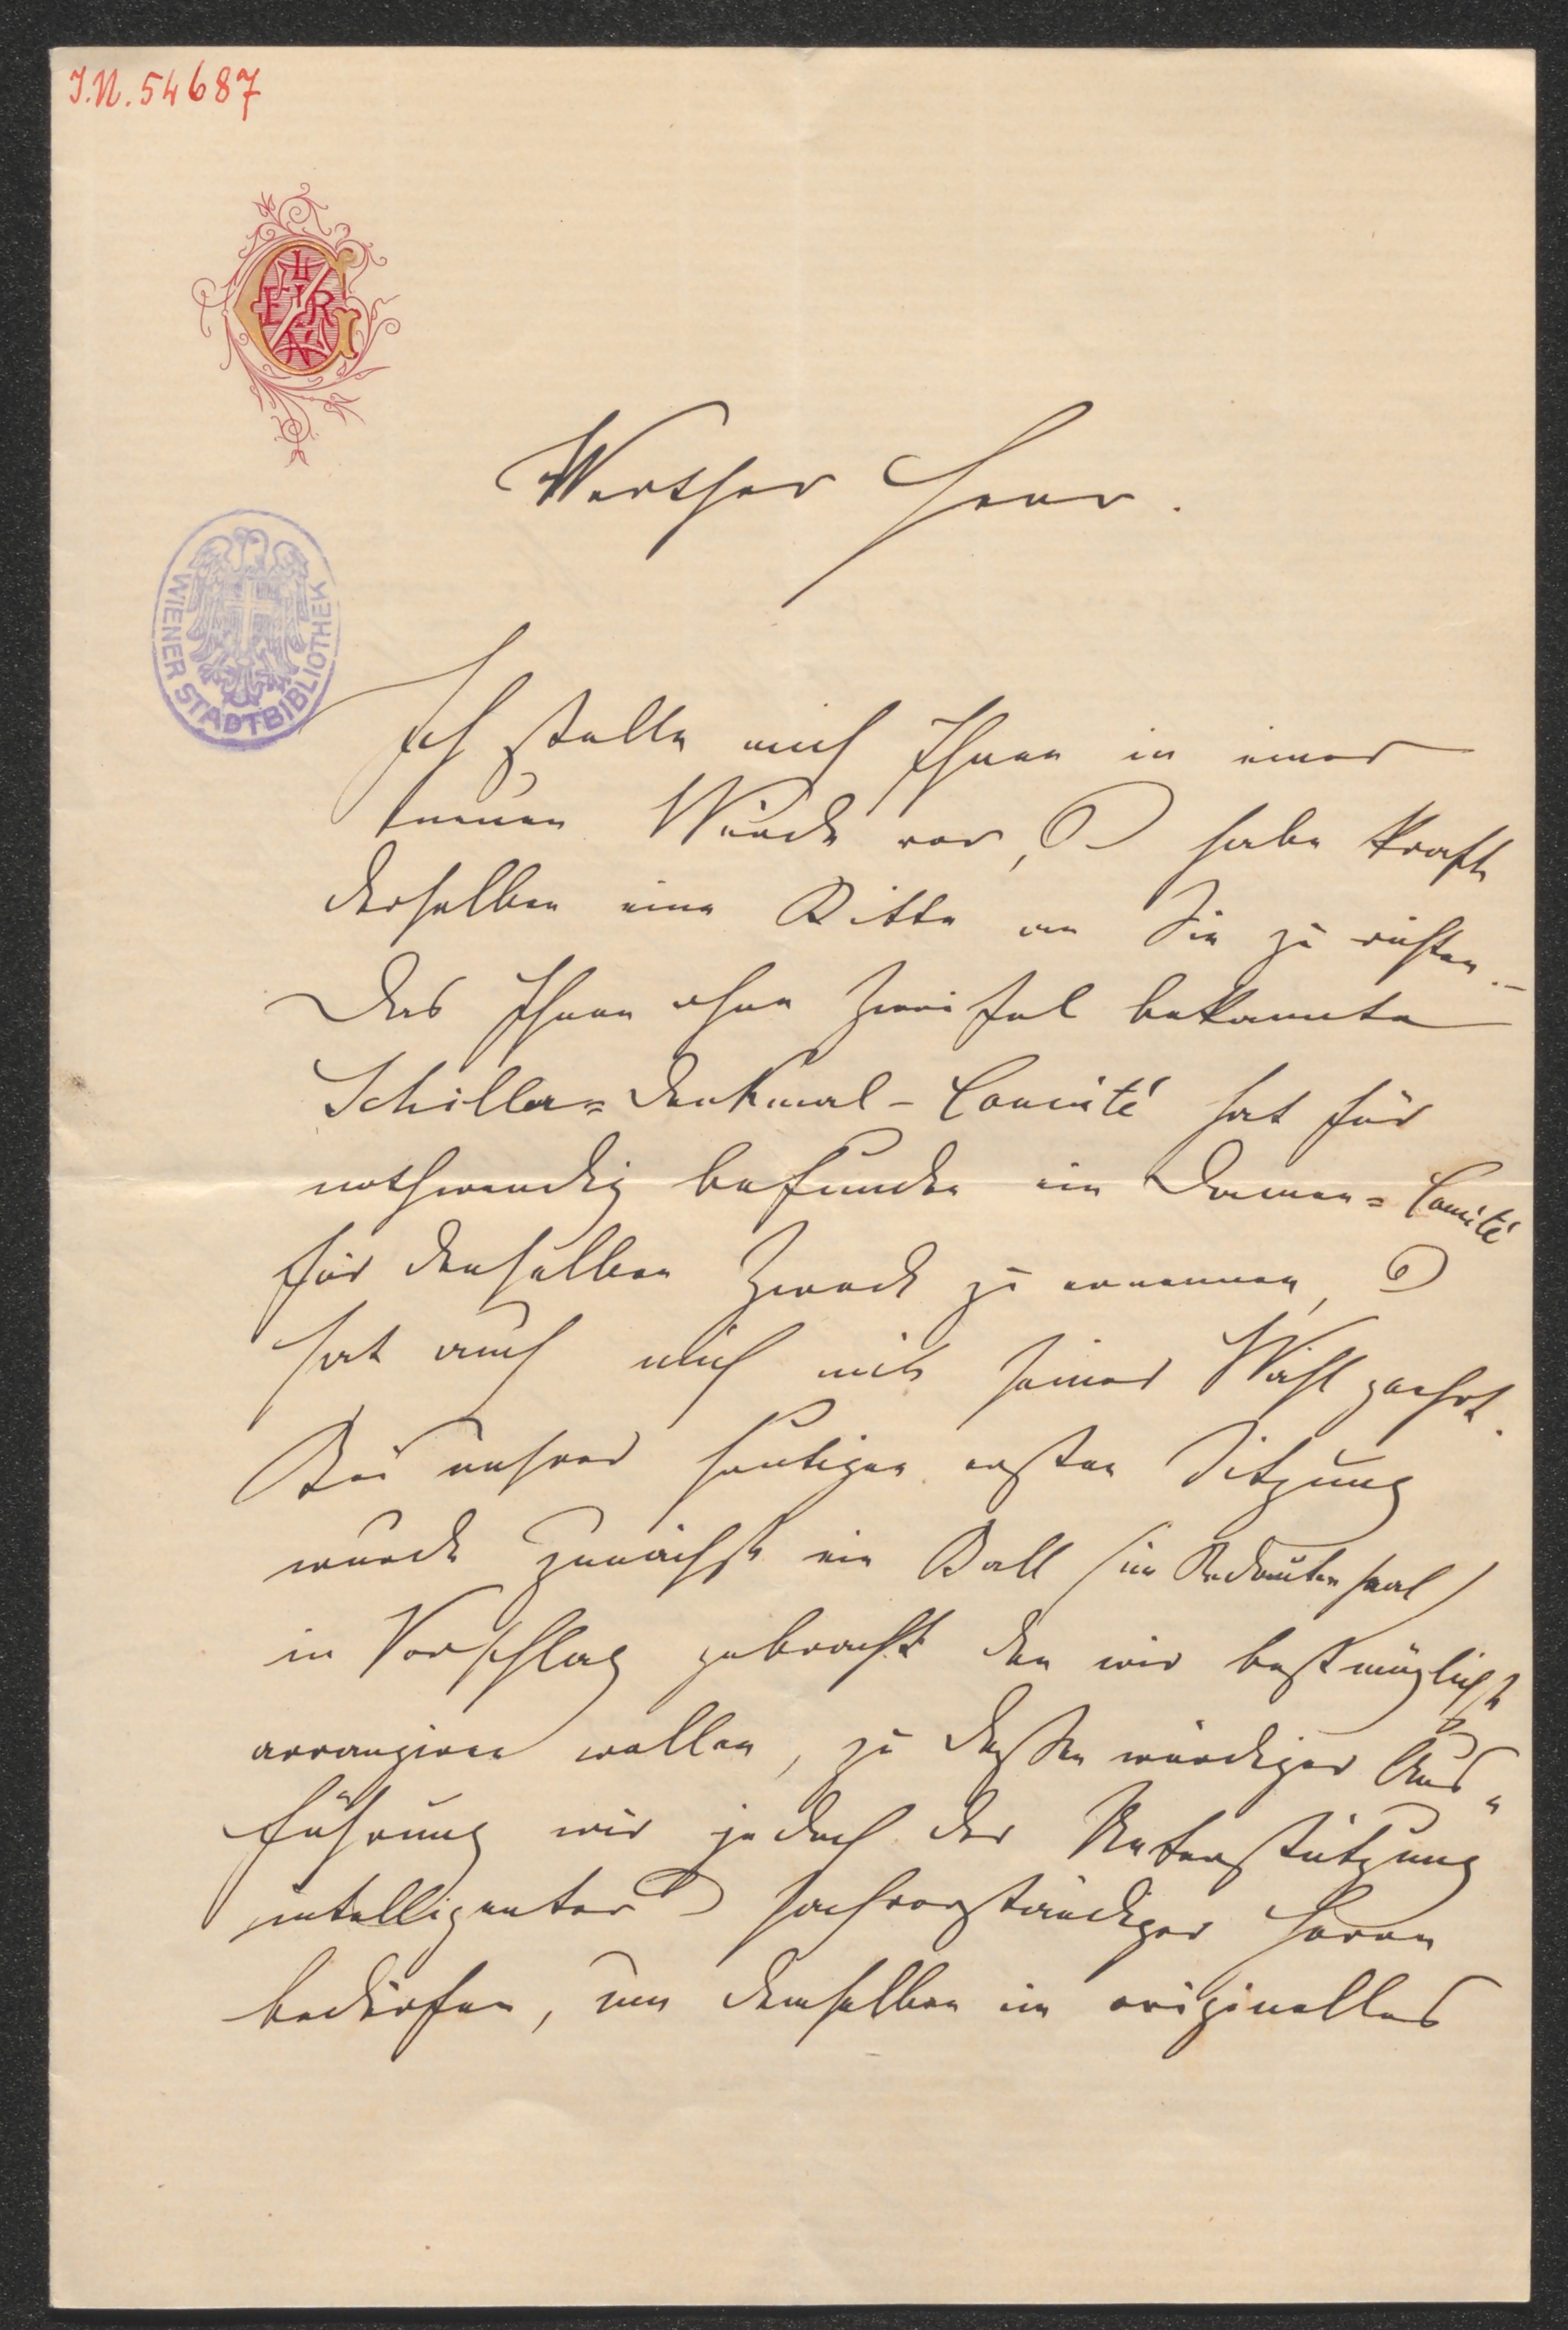 I.N. 54687
WIENER STADTBIBLIOTHEK
Werther Herr.
Ich stelle mich Ihnen in einer
neuen Würde vor, & habe kraft
derselben eine Bitte an Sie zu richten. –
Das Ihnen ohne Zweifel bekannte
Schiller=Denkmal-Comité hat für
nothwendig befunden ein Damen=Comité
für denselben Zweck zu ernennen, &
hat auch mich mit seiner Wahl geehrt.
Bei unsrer heutigen ersten Sitzung
wurde zunächst ein Ball (im Redoutensaal)
in Vorschlag gebracht den wir bestmöglichst
arrangiren wollen, zu dessen würdiger Aus„
führung wir jedoch der Unterstützung
intelligenter & sachverständiger Herren
bedürfen, um demselben ein originelles